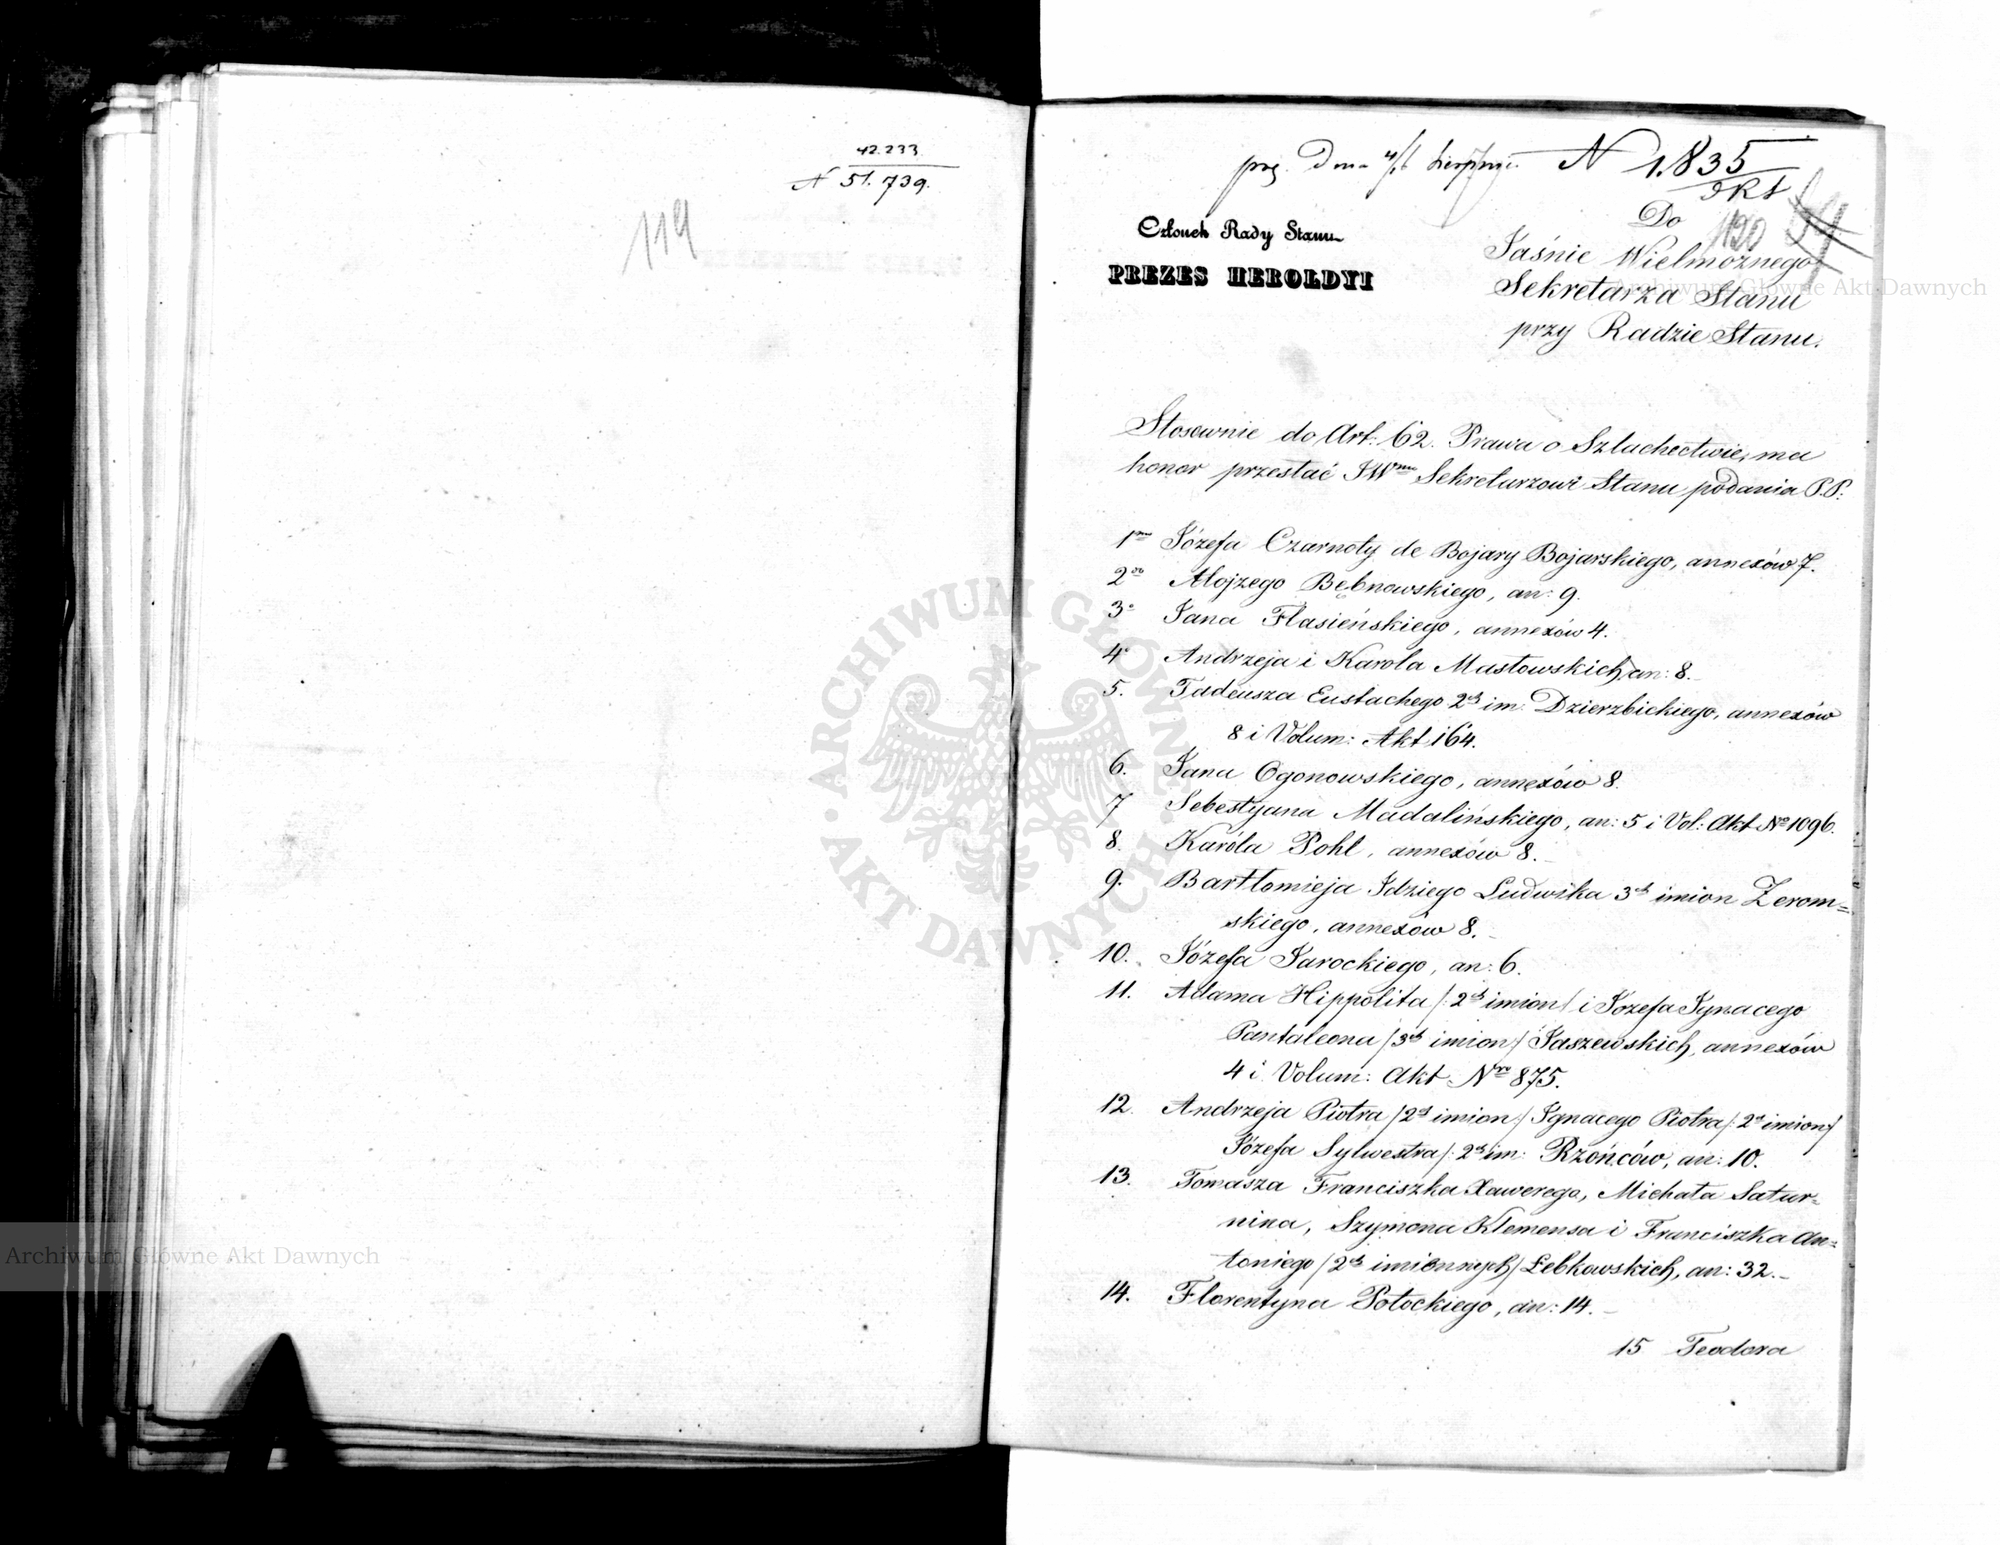 42.233
N 51.739.
119
N 1.835
Do
120
Członek Rady Stanu
PREZES HEROLDYI
Jaśnie Wielmożnego
Sekretarza Stanu
przy Radzie Stanu.
Stosownie do Art: 62. Prawa o Szlachectwie, ma
honor przesłać JWmu Sekretarzowi Stanu podania P.P.
1mo Józefa Czarnoty de Bojary Bojarskiego, annexów 7.
2do Alojzego Bębnowskiego, an: 9.
3o Jana Flasieńskiego, annexów 4.
4o Andrzeja i Karola Masłowskich, an: 8.
5. Tadeusza Eustachego 2ch im: Dzierzbickiego, annexów
8 i Volum: Akt 164.
6. Jana Ogonowskiego, annexów 8.
7 Sebestyana Madalińskiego, an: 5 i Vol: Akt No 1096.
8. Karóla Pohl, annexów 8.
9. Bartłomieja Idziego Ludwika 3ch imion Żerom=
skiego, annexów 8.
10. Józefa Jarockiego, an: 6.
11. Adama Hippolita /: 2ch imion/ i Józefa Ignacego
Pantaleona /3ch imion/ Jaszewskich, annexów
4 i Volum: Akt Nro 875.
12. Andrzeja Piotra /2ch imion/ Ignacego Piotra /: 2ch imion/
Józefa Sylwestra /: 2ch im: Rzońców, an: 10.
13. Tomasza Franciszka Xawerego, Michała Satur=
nina, Szymona Klemensa i Franciszka An=
toniego /2ch imionnych/ Łebkowskich, an: 32.
14. Florentyna Potockiego, an: 14.
15 Teodora
ARCHIWUM GŁÓWNE AKT DAWNYCH
Archiwum Główne Akt Dawnych
Archiwum Główne Akt Dawnych